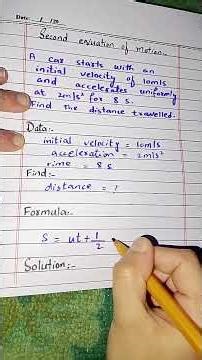 Date: 1 /20
Second equation of motion:-
A car starts with an
initial velocity of 10m/s
and accelerates uniformly
at 2m/s² for 8 s.
Find the distance travelled.
Data:-
initial velocity = 10m/s
acceleration = 2m/s²
time = 8s
Find:-
distance = ?
Formula:-
S = ut + 1/2
Solution:-